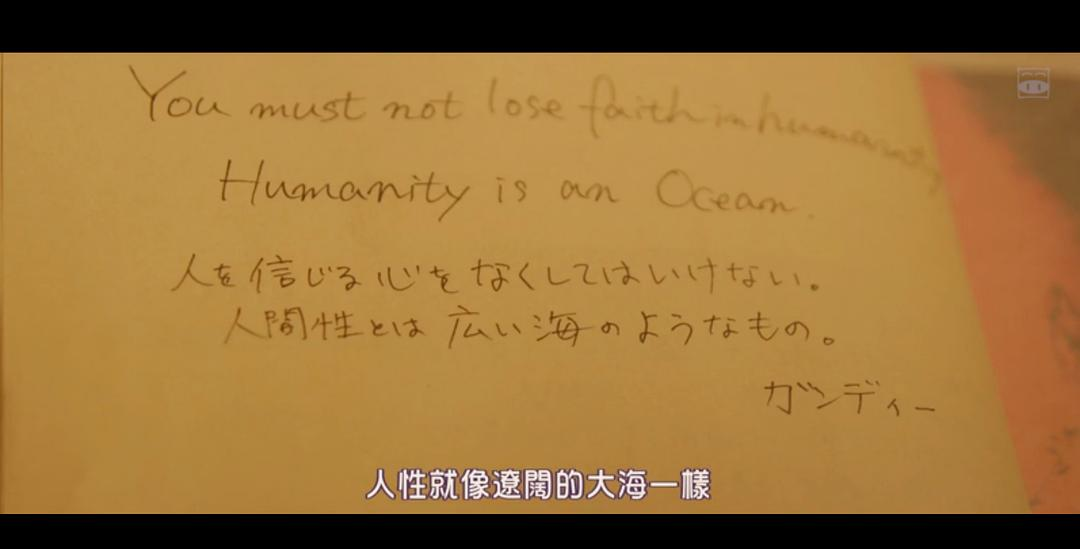 You must not lose faith in humanity
Humanity is an Ocean.
人を信じる心をなくしてはいけない。
人間性とは広い海のようなもの。
ガンディー
人性就像遼闊的大海一樣